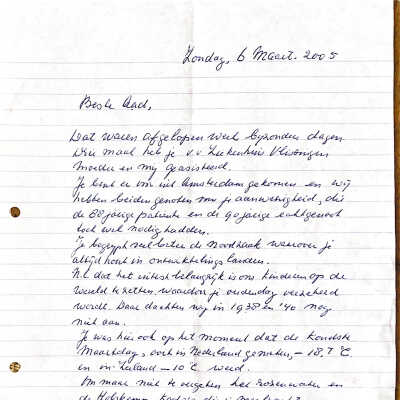 Zondag, 6 Maart. 2005
Beste Aad,
Dat waren afgelopen week bijzondere dagen
Drie maal heb je v.v. Ziekenhuis Vlissingen
moeder en mij geassisteerd.
Je bent er om uit Amsterdam gekomen en wij
hebben beiden genoten van je aanwezigheid, die
de 88 jarige patiente en de 90 jarige echtgenoot
toch wel nodig hadden.
Je begrijpt nu beter de noodzaak waarover je
altijd hoort in ontwikkelingslanden.
Nl. dat het uiterst belangrijk is om kinderen op de
wereld te zetten, waardoor je oudendag verzekerd
wordt. Daar dachten wij in 1938 en '40 nog
niet aan.
Je was hier ook op het moment dat de koudste
Maartdag, ooit in Nederland gemeten, - 18,7 °C
en in Zeeland - 10 °C werd.
Om maar niet te vergeten het rozenwater en
de